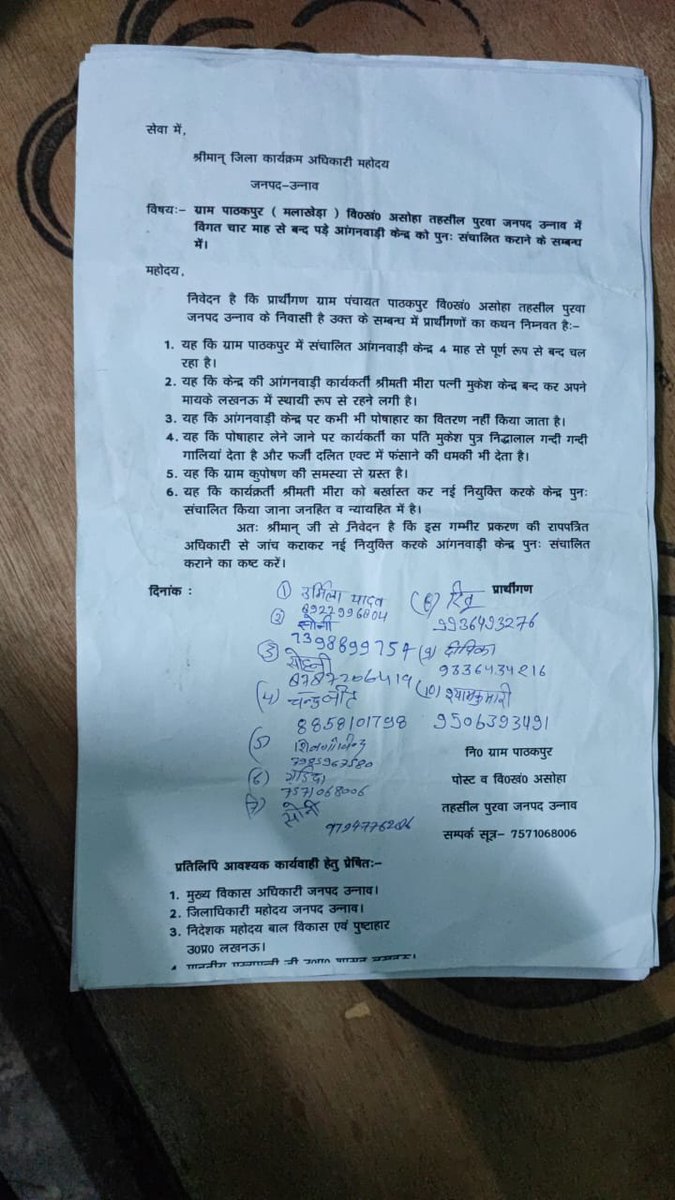 सेवा में,
श्रीमान् जिला कार्यक्रम अधिकारी महोदय
जनपद-उन्नाव
विषयः- ग्राम पाठकपुर ( मलाखेड़ा ) वि0खं0 असोहा तहसील पुरवा जनपद उन्नाव में
विगत चार माह से बन्द पड़े आंगनवाड़ी केन्द्र को पुनः संचालित कराने के सम्बन्ध
में।
महोदय,
निवेदन है कि प्रार्थीगण ग्राम पंचायत पाठकपुर वि0खं0 असोहा तहसील पुरवा
जनपद उन्नाव के निवासी है उक्त के सम्बन्ध में प्रार्थीगणों का कथन निम्नवत हैः-
1. यह कि ग्राम पाठकपुर में संचालित आंगनवाड़ी केन्द्र 4 माह से पूर्ण रूप से बन्द चल
रहा है।
2. यह कि केन्द्र की आंगनवाड़ी कार्यकर्ती श्रीमती मीरा पत्नी मुकेश केन्द्र बन्द कर अपने
मायके लखनऊ में स्थायी रूप से रहने लगी है।
3. यह कि आंगनवाड़ी केन्द्र पर कभी भी पोषाहार का वितरण नहीं किया जाता है।
4. यह कि पोषाहार लेने जाने पर कार्यकर्ती का पति मुकेश पुत्र निद्धालाल गन्दी गन्दी
गालियां देता है और फर्जी दलित एक्ट में फंसाने की धमकी भी देता है।
5. यह कि ग्राम कुपोषण की समस्या से ग्रस्त है।
6. यह कि कार्यकर्ती श्रीमती मीरा को बर्खास्त कर नई नियुक्ति करके केन्द्र पुनः
संचालित किया जाना जनहित व न्यायहित में है।
अतः श्रीमान् जी से निवेदन है कि इस गम्भीर प्रकरण की रापपत्रित
अधिकारी से जांच कराकर नई नियुक्ति करके आंगनवाड़ी केन्द्र पुनः संचालित
कराने का कष्ट करें।
दिनांक :
प्रार्थीगण
(1) उर्मिला यादव
8922996804
(2) सोनी
7398899754
(3) मोहनी
(4) चन्द्रजीत
8858101798
(5)
7985967580
(6)
7571068006
(7) सोनी
(8) रितू
9936493276
(9) दीपिका
9336434216
(10) श्यामकुमारी
9506393491
नि0 ग्राम पाठकपुर
पोस्ट व वि0खं0 असोहा
तहसील पुरवा जनपद उन्नाव
सम्पर्क सूत्र- 7571068006
प्रतिलिपि आवश्यक कार्यवाही हेतु प्रेषितः-
1. मुख्य विकास अधिकारी जनपद उन्नाव।
2. जिलाधिकारी महोदय जनपद उन्नाव।
3. निदेशक महोदय बाल विकास एवं पुष्टाहार
उ0प्र0 लखनऊ।